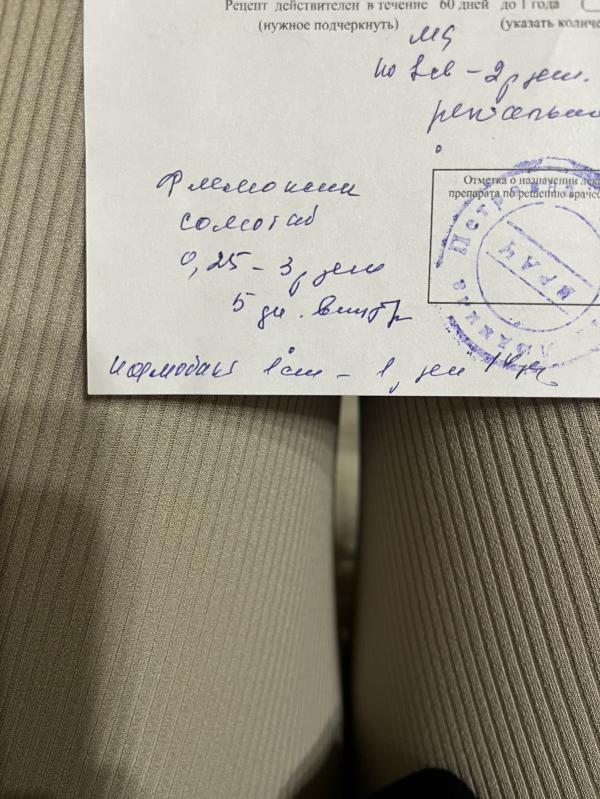 Рецепт действителен в течение 60 дней до 1 года
(нужное подчеркнуть) (указать количе
МЦ
по 1 св - 2 р. ден.
ректально
Отметка о назначении
препарата по решению врачеб
Флемоксин
солютаб
0,25 - 3 р. день
5 дн. внутр
ВРАЧ
нормобакт 1 - 1 р. ден